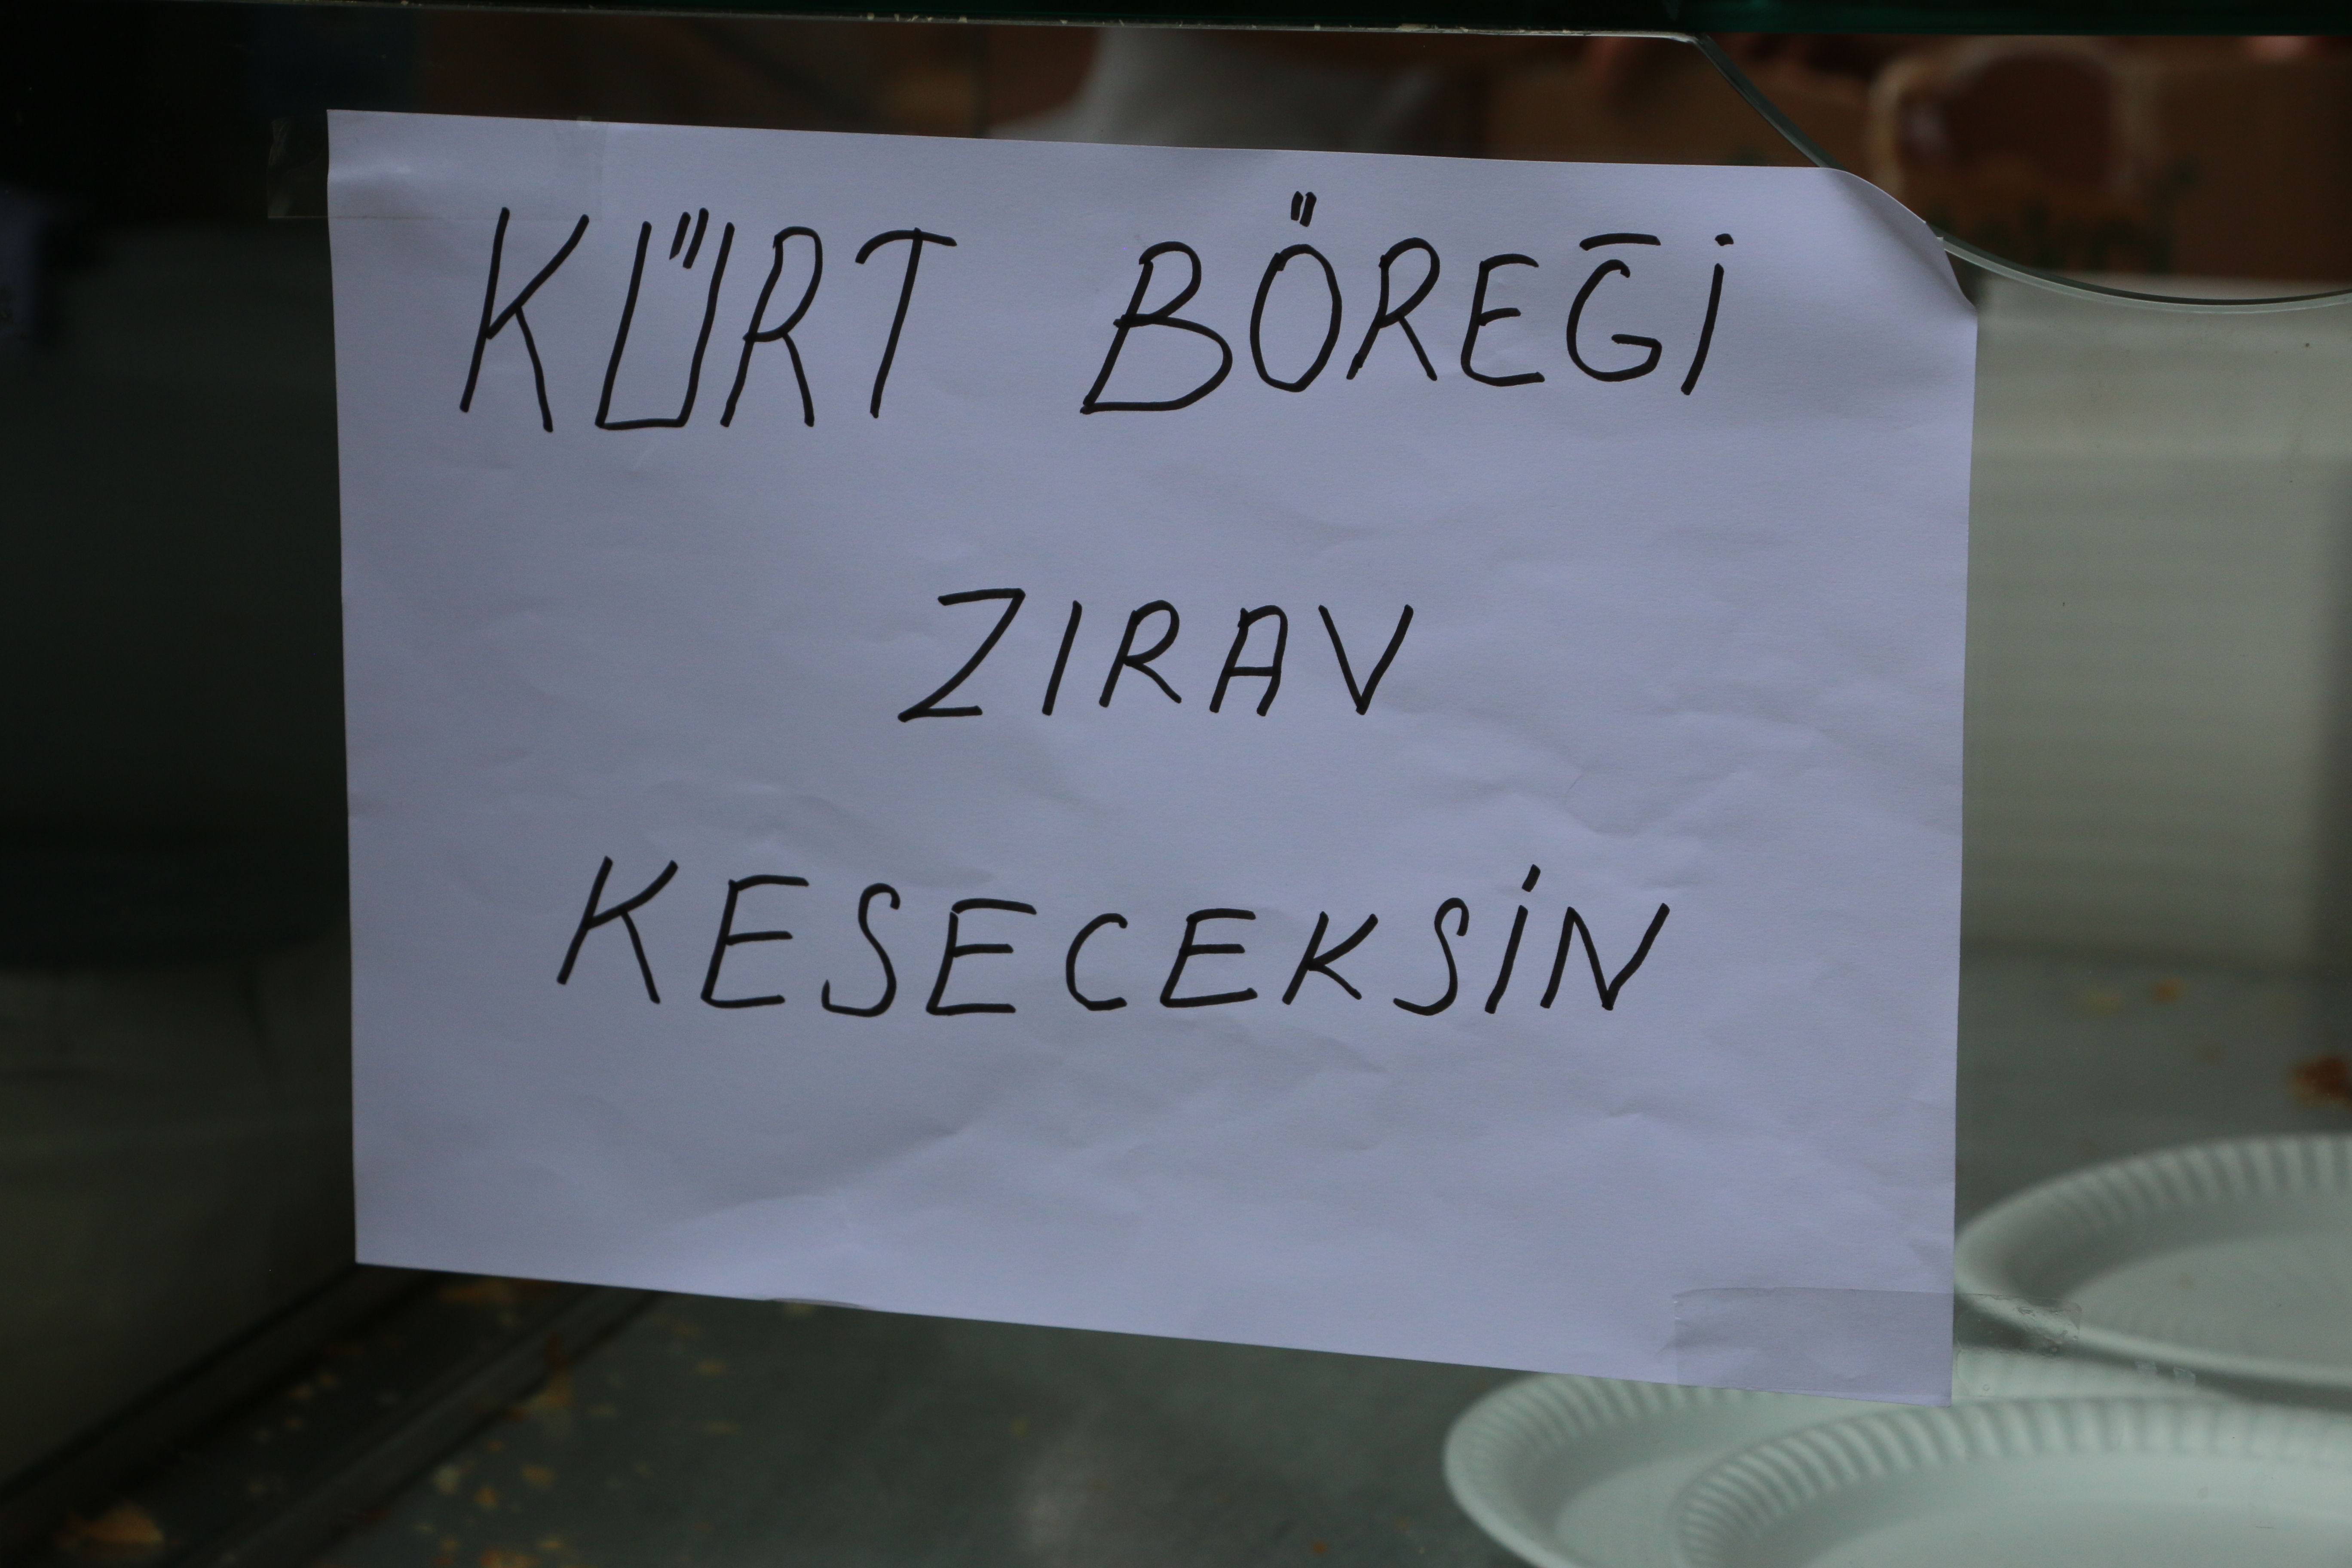 KÜRT BÖREĞİ
ZIRAV
KESECEKSİN